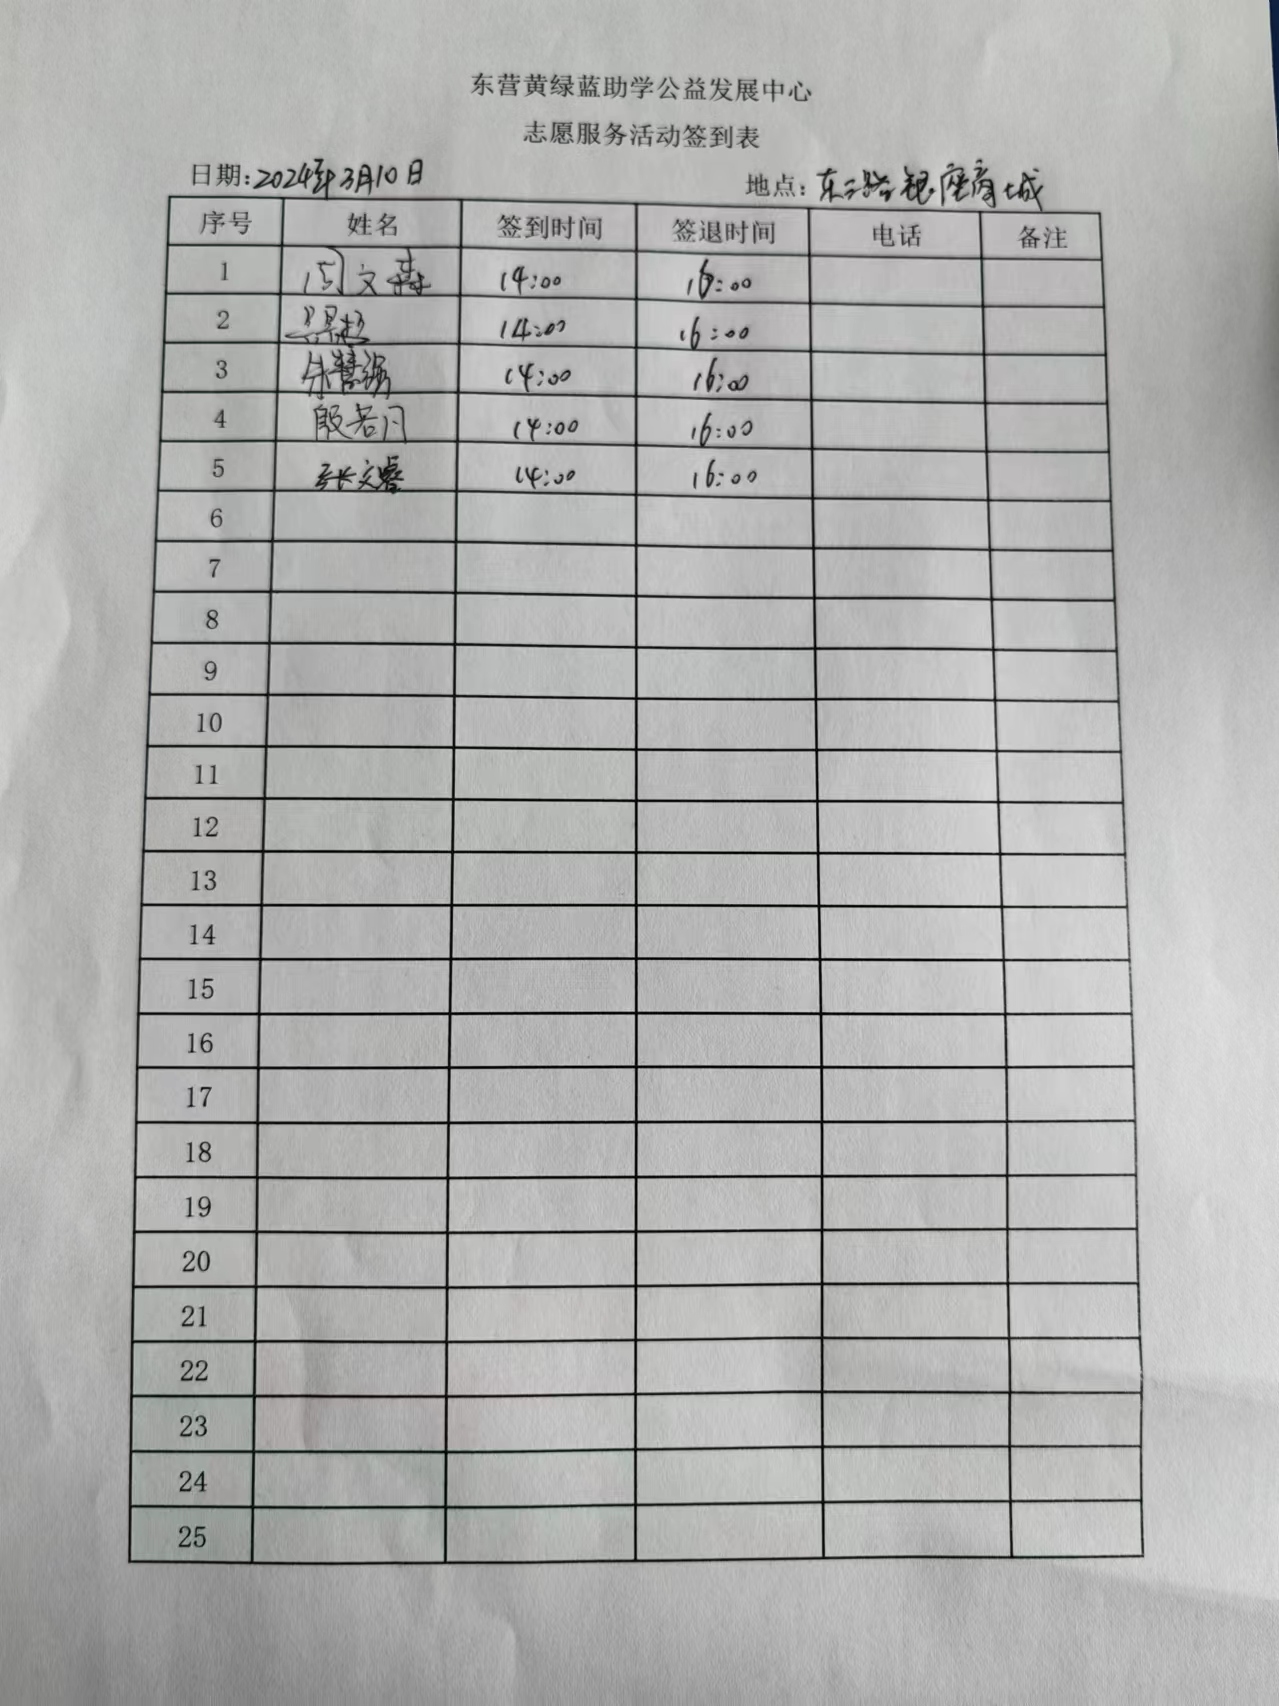 东营黄绿蓝助学公益发展中心
志愿服务活动签到表
日期:2024年3月10日 地点:东二路银座商城
序号 姓名 签到时间 签退时间 电话 备注
1 周文森 14:00 16:00
2 14:00 16:00
3 朱慧 14:00 16:00
4 殷若月 14:00 16:00
5 张文睿 14:00 16:00
6
7
8
9
10
11
12
13
14
15
16
17
18
19
20
21
22
23
24
25